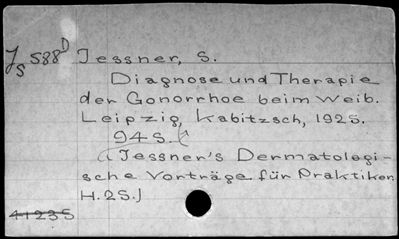 J S 588 D Jessner, S.
Diagnose und Therapie
der Gonorrhoe beim Weib.
Leipzig, Kabitzsch, 1925.
94 S.
(Jessner's Dermatologi-
sche Vorträge für Praktiker.
H. 25.)
41235